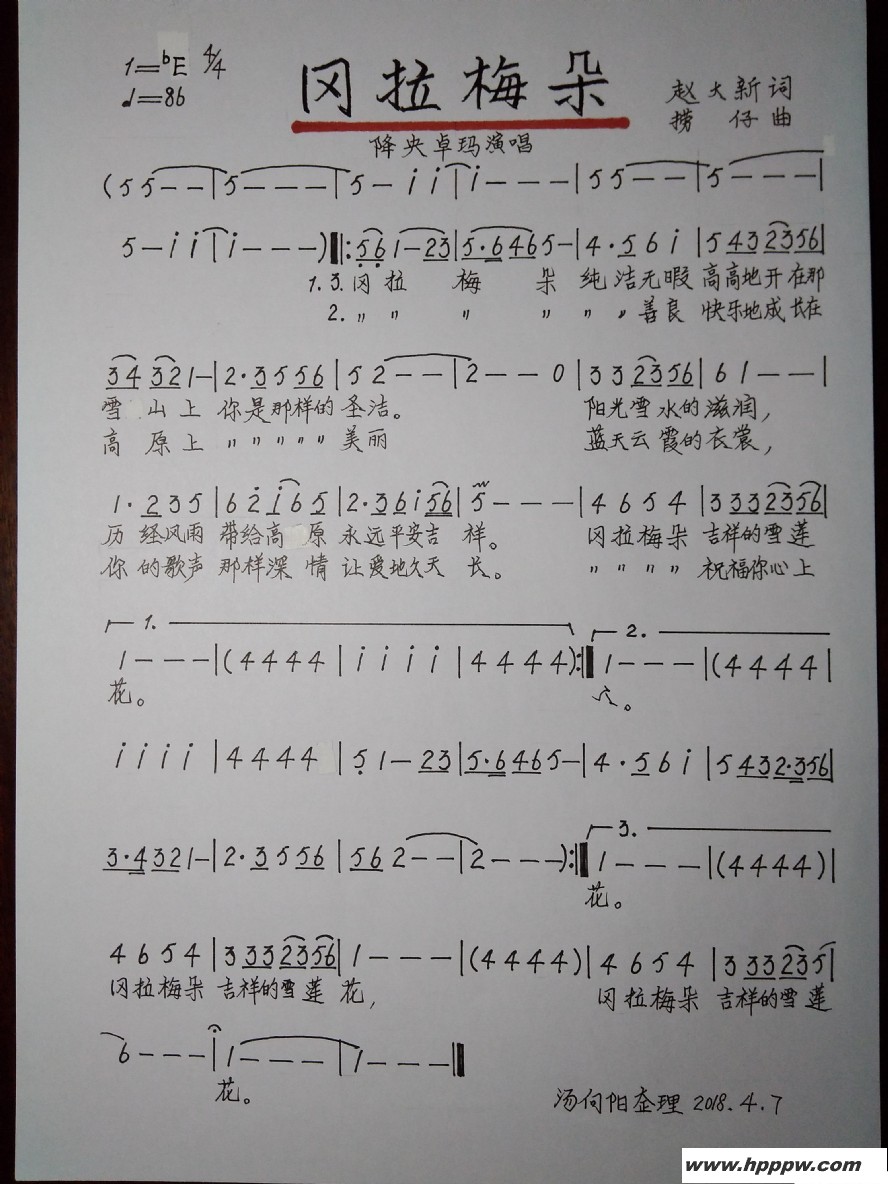 1=ᵇE 4/4
♩=86
冈拉梅朵
赵大新词
捞仔曲
降央卓玛演唱
(5 5 - - | 5 - - - | 5 - i i | i - - - | 5 5 - - | 5 - - - |
5 - i i | i - - - ) ‖: 5 6 1 - 2 3 | 5 · 6 4 6 5 - | 4 · 5 6 i | 5 4 3 2 3 5 6 |
1. 3. 冈拉 梅 朵 纯洁无暇 高高地开在那
2. 〃 〃 〃 〃 〃 〃 善良 快乐地成长在
3 4 3 2 1 - | 2 · 3 5 5 6 | 5 2 - - | 2 - - 0 | 3 3 2 3 5 6 | 6 1 - - |
雪 山上 你是那样的圣洁。 阳光雪水的滋润,
高 原上 〃 〃 〃 〃 〃 美丽 蓝天云霞的衣裳,
1 · 2 3 5 | 6 2 i 6 5 | 2 · 3 6 i 5 6 | 5 - - - | 4 6 5 4 | 3 3 3 2 3 5 6 |
历 经风雨 带给高 原 永远平安吉 祥。 冈拉梅朵 吉祥的雪莲
你 的歌声 那样深 情 让爱地久天 长。 〃 〃 〃 〃 祝福你心上
1. 2.
1 - - - | (4 4 4 4 | i i i i | 4 4 4 4 ) :‖ 1 - - - | (4 4 4 4 |
花。 。
i i i i | 4 4 4 4 | 5 1 - 2 3 | 5 · 6 4 6 5 - | 4 · 5 6 i | 5 4 3 2 · 3 5 6 |
3.
3 · 4 3 2 1 - | 2 · 3 5 5 6 | 5 6 2 - - | 2 - - - ) :‖ 1 - - - | (4 4 4 4 ) |
花。
4 6 5 4 | 3 3 3 2 3 5 6 | 1 - - - | (4 4 4 4 ) | 4 6 5 4 | 3 3 3 2 3 5 |
冈拉梅朵 吉祥的雪莲 花, 冈拉梅朵 吉祥的雪莲
6 - - - | 1 - - - | 1 - - - ‖
花。
汤向阳整理 2018.4.7
www.hpppw.com